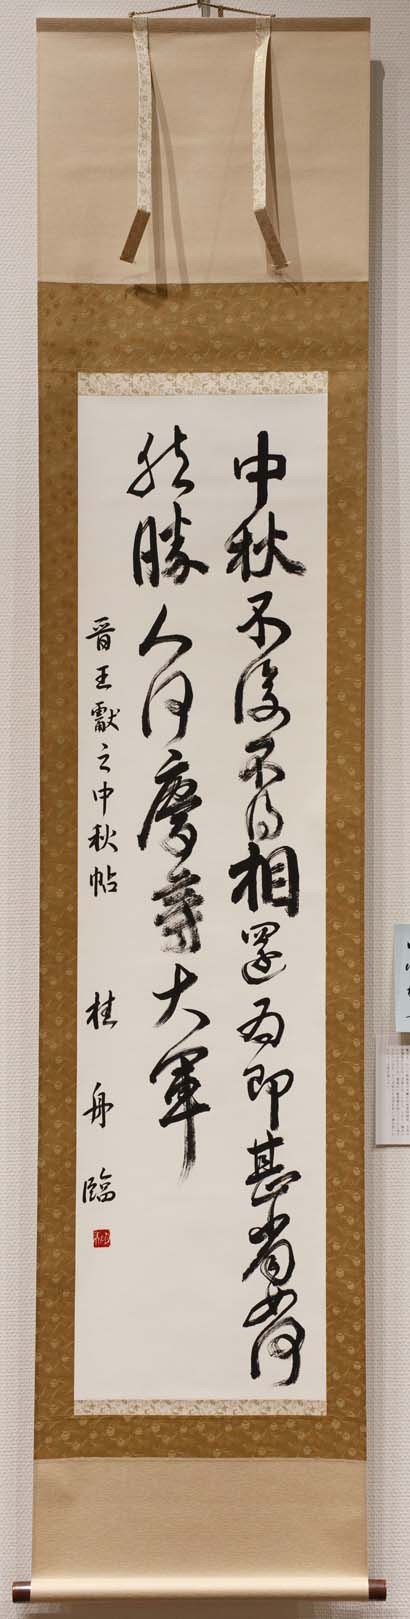 中秋不復不得相還為即甚省如何
然勝人何慶等大軍
晋王獻之中秋帖 桂舟臨